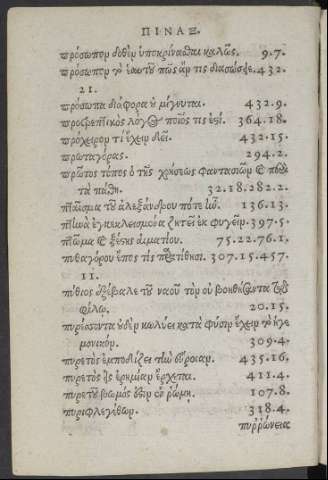 ΠΙΝΑΞ.
πρόσωπον δοθὲν ὑποκρίνασθαι καλῶς. 9.7.
πρόσωπον τὸ ἑαυτοῦ πῶς ἄν τις διασώσῃε. 432.
21.
πρόσωπα διάφορα οὐ μίγνυται. 432.9.
προτρεπτικὸς λόγος ποῖός τις ἐστί. 364.18.
πρόχειρον τί ἔχειν δεῖ. 432.15.
πρωταγόρας. 294.2.
πρῶτος τόπος ὁ τῆς χρήσεως φαντασιῶν ὁ περὶ
τὰ πάθη. 32.18.282.2.
πταῖσμα τοῦ ἀλεξάνδρου πότε ἦν. 136.13.
πτηνὰ ἐγκεκλεισμένα ζητεῖ ἐκφυγεῖν. 397.5.
πτῶμα ὁ ἑξῆς αἱματίου. 75.22.76.1.
πυθαγόρου ἔπος τίς προτίθησι. 307.15.457.
11.
πύθιος ἐξέβαλε τοῦ ναοῦ τὸν οὐ βοηθήσαντα τῷ
φίλῳ. 20.15.
πυρέσσοντα οὐδὲν κωλύει κατὰ φύσιν ἔχειν τὸ ἡγε
μονικόν. 309.4.
πυρετὸς ἐμποδίζει τὴν εὔροιαν. 435.16.
πυρετὸς εἰς ἐρημίαν ἔρχεται. 411.4.
πυρετοῦ βωμός ἐστιν ἐν ῥώμῃ. 107.8.
πυριφλεγέθων. 318.4.
πυρρώνεια